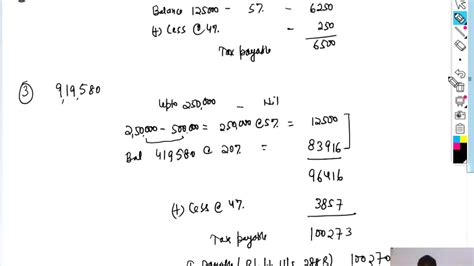 Balance 125000 - 5% - 6250
(+) Cess @ 4% - 250
Tax payable 6500
③ 9,19,580
Upto 250,000 - Nil
2,50,000 - 500,00 = 250,000 @ 5% = 12500
Bal 419580 @ 20% = 83916
96416
(+) Cess @ 4% 3857
Tax payable 100273
Payable (R/off U/s 288B) 100270